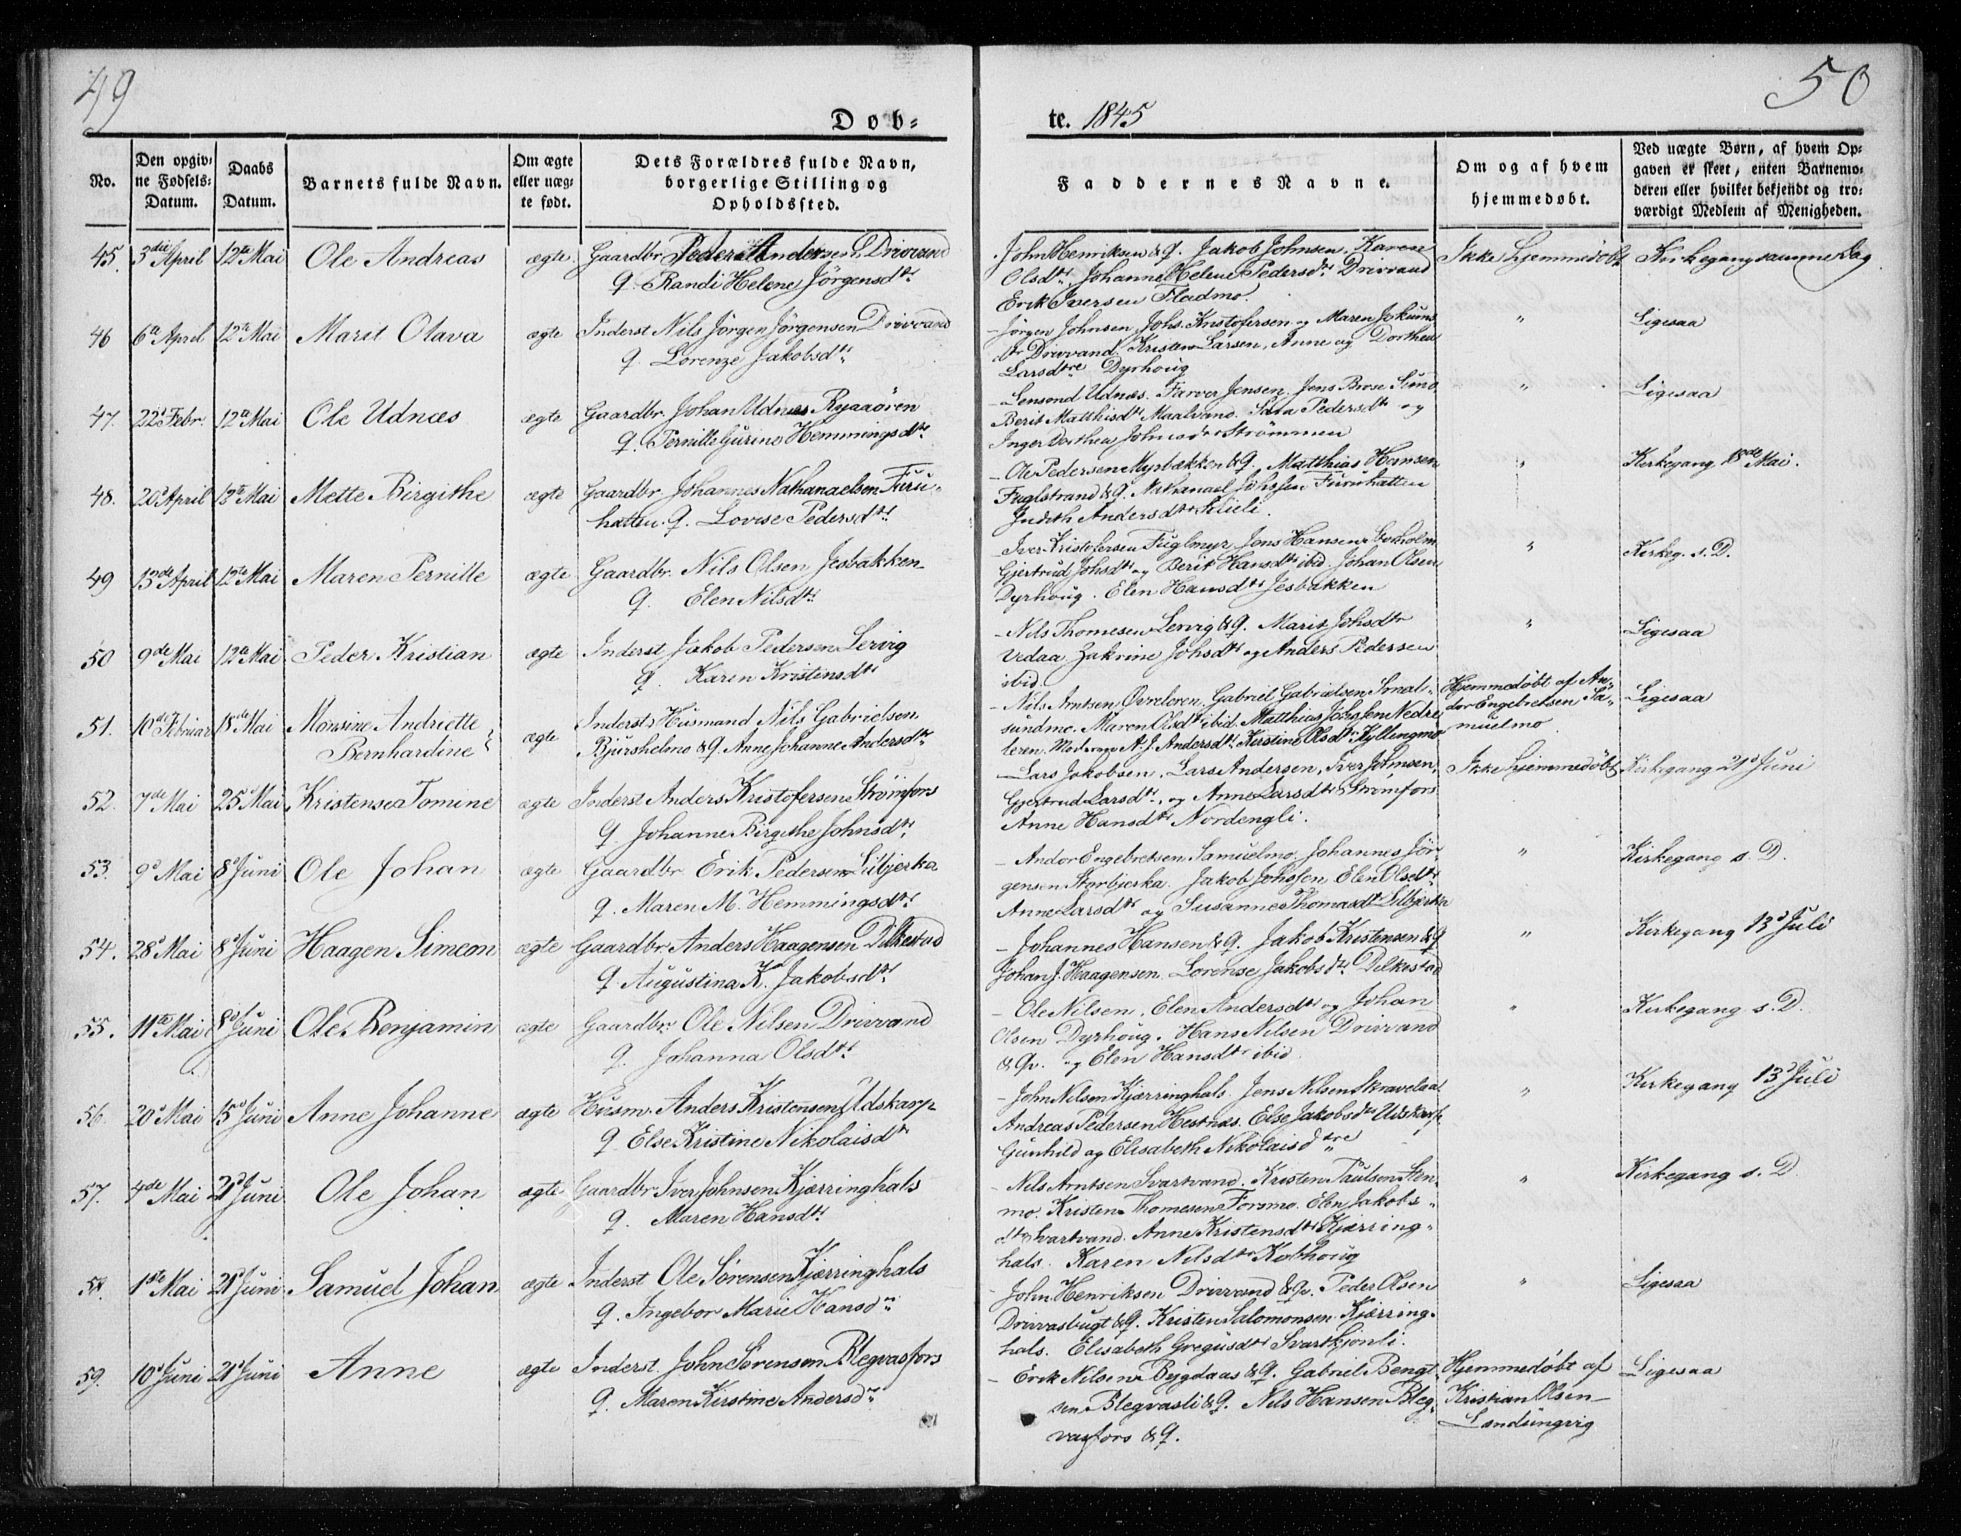 49
50
Døb-
te. 1845
No.
Den opgiv-
ne Fødsels-
Datum.
Daabs
Datum.
Barnets fulde Navn.
Om ægte
eller uæg-
te født.
Dets Forældres fulde Navn,
borgerlige Stilling og
Opholdssted.
Faddernes Navne.
Om og af hvem
hjemmedøbt.
Ved uægte Børn, af hvem Op-
gaven er skeet, enten Barnemo-
deren eller hvilket bekjendt og tro-
værdigt Medlem af Menigheden.
45. 3die April 12te Mai Ole Andreas ægte. Gaardbr. Peder Andersen Drivvand
Q. Randi Helene Jörgensdtr
John Henriksen & Q. Jakob Johnsen. Karen
Olsdtr. Johanne Helene Pedersdtr Drivvand
Erik Iversen Fladmo.
Ikke hjemmedöbt Kirkegang samme Dag
46 6te April 12te Mai Marit Olava ægte Inderst Nils Jörgen Jörgensen Drivvand
Q. Lorenze Jakobsdtr
Jörgen Johnsen, Johs. Kristofersen og Maren Jokums
dtr Drivvand. Kristen Larsen, Anne og Dorthea
Larsdtre Dyrhoug
" Ligesaa
47. 22d Febr. 12te Mai Ole Udnæs ægte Gaardbr. Johan Udnæs Ryaaören
Q. Pernille Gurine Hemmingsdtr
Udnæs. Farver Jensen, Jens Brose
Berit Matthisdtr Maalvand. Sara Pedersdtr og
Inger Dorthea Johnsdtr Strömmen
" Ligesaa
48. 20d April 12te Mai Mette Birgithe ægte Gaardbr. Johannes Nathanaelsen Furu-
hatten. Q. Lovise Pedersdtr
Ole Pedersen Myrbækken & Q. Matthias Hansen
Fuglstrand & Q. Nathanael Johssen Furuhatten
Judith Andersdtr
" Kirkegang 18de Mai.
49 13de April 12te Mai Maren Pernille ægte Gaardbr. Nils Olsen Jesbakken
Q. Elen Nilsdtr
Iver Kristofersen Fuglmyr. Jens Hansen
Gjertrud Johsdtr og Berit Hansdtr ibid. Johan Olsen
Dyrhoug. Elen Hansdtr Jesbakken
" Kirkeg. s. D.
50 9de Mai 12te Mai Peder Kristian ægte Inderst Jakob Pedersen Lervig
Q. Karen Kristensdtr
Nils Thomesen Lervig & Q. Marit Johsdtr
Vedaa. Zakrine Johsdtr og Anders Pedersen
ibid.
" Ligesaa
51. 10de Februar 18de Mai Monsine Andriette
Bernhardine
ægte Inderst Husmand Nils Gabrielsen
& Q. Anne Johanne Andersdtr
Nils Arntsen Övreleren. Gabriel Gabrielsen Smal-
sundmo. Maren Olsdtr ibid. Matthias Johssen Nedre
leren. Moderen A. J. Andersdtr. Kirstine Olsdtr Kyllingmo
Hjemmedøbt af An-
dor Engebretsen Sa-
muelmo
Ligesaa
52. 7de Mai 25d Mai Kristense Tomine ægte Inderst Anders Kristofersen Strømfors
Q. Johanne Birgithe Johnsdtr
Lars Jakobsen, Lars Andersen, Iver Johnsen,
Gjertrud Larsdtr, og Anne Larsdtr Strömfors
Anne Hansdtr Nordengli.
Ikke hjemmedöbt Kirkegang 21d Juni
53. 9d Mai 8d Juni Ole Johan ægte Gaardbr. Erik Pedersen Lilbjerka
Q. Maren M. Hemmingsdtr
Andor Engebretsen Samuelmo. Johannes Jör-
gensen Storbjerka. Jakob Johssen Elen Olsdtr
Anne Larsdtr og Susanne Thomasdtr Lilbjerka
" Kirkegang s. D.
54. 28d Mai 8d Juni Haagen Simeon ægte Gaardbr Anders Haagensen Dilkestad
Q. Augustina K. Jakobsdtr
Johannes Hansen & Q. Jakob Kristensen & Q
Johan J. Haagensen. Lorense Jakobsdtr Dilkestad
" Kirkegang 13d Juli
55. 11te Mai 8d Juni Ole Benjamin ægte Gaardbr. Ole Nilsen Drivvand
Q. Johanna Olsdtr
Ole Nilsen. Elen Andersdtr og Johan
Olsen Dyrhoug. Hans Nilsen Drivvand
& Qv. og Elen Hansdtr ibid.
" Kirkegang s. D.
56. 20d Mai 15d Juni Anne Johanne ægte Husm. Anders Kristensen Udskarp
Q. Else Kristine Nikolaisdtr
John Nilsen Kjærringhals. Jens Nilsen Skravelaa
Andreas Pedersen Hestnæs. Else Jakobsdtr Udskarp.
Gunhild og Elisabeth Nikolaisdtre
" Kirkegang 13d Juli
57. 4de Mai 21d Juni Ole Johan ægte Gaardbr Iver Johnsen Kjærringhals
Q. Maren Hansdtr
Nils Arntsen Svartvand. Kristen Paulsen Sten-
mo. Kristen Thomesen Forsmo. Elen Jakobs-
dtr Svartvand. Anne Kristensdtr Kjærring-
hals. Karen Nilsdtr Kobhoug
" Kirkegang s. D.
58. 1ste Mai 21d Juni Samuel Johan ægte Inderst Ole Sörensen Kjærringhals
Q. Ingebor Marie Hansdtr
John Henriksen Drivvand & Qv. Peder Olsen
Drivvasbugt & Q. Kristen Salomonsen Kjærring-
hals. Elisabeth Gregusdtr Svarttjönli.
" Ligesaa
59. 10d Juni 21d Juni Anne ægte Inderst. John Sörensen Blegvasfors
Q. Maren Kirstine Andersdtr
Erik Nilsen Bygdaas & Q. Gabriel Bengt-
sen Blegvasli & Q. Nils Hansen Bleg-
vasfors & Q.
Hjemmedöbt af
Kristian Olsen
Landsingvig
Ligesaa